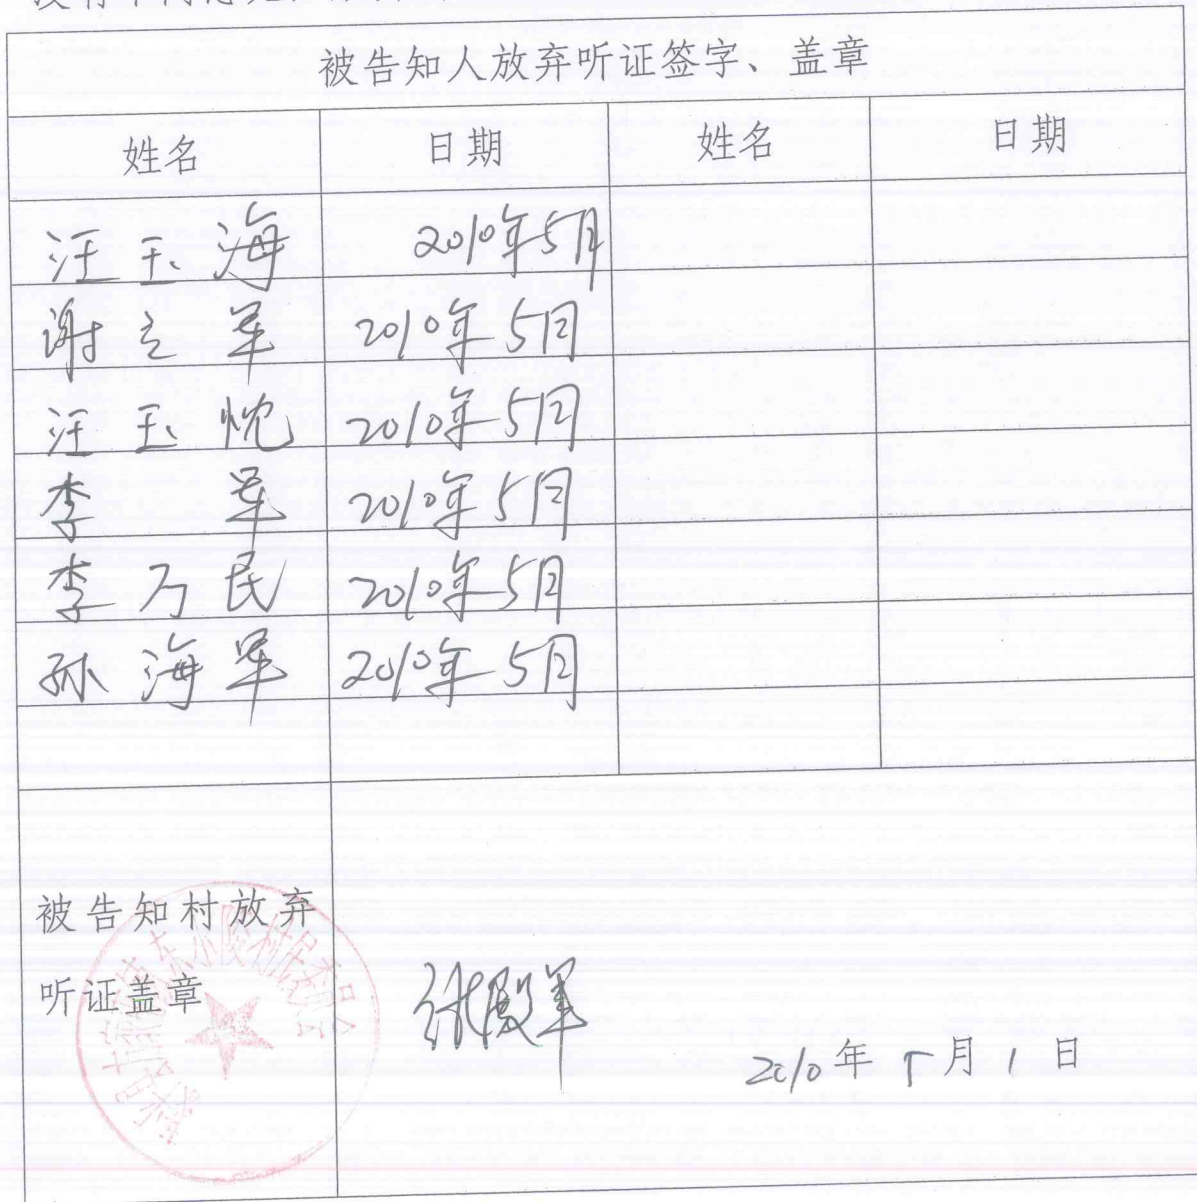 被告知人放弃听证签字、盖章
姓名 日期 姓名 日期
汪玉海 2010年5月
谢立军 2010年5月
汪玉忱 2010年5月
李军 2010年5月
李乃民 2010年5月
孙海军 2010年5月
被告知村放弃
听证盖章
2010年5月1日